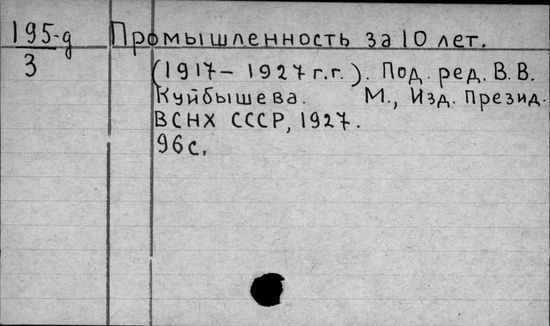 195-д Промышленность за 10 лет.
3 (1917-1927 г.г.). Под. ред. В.В.
Куйбышева. М., Изд. Презид.
ВСНХ СССР, 1927.
96 с.